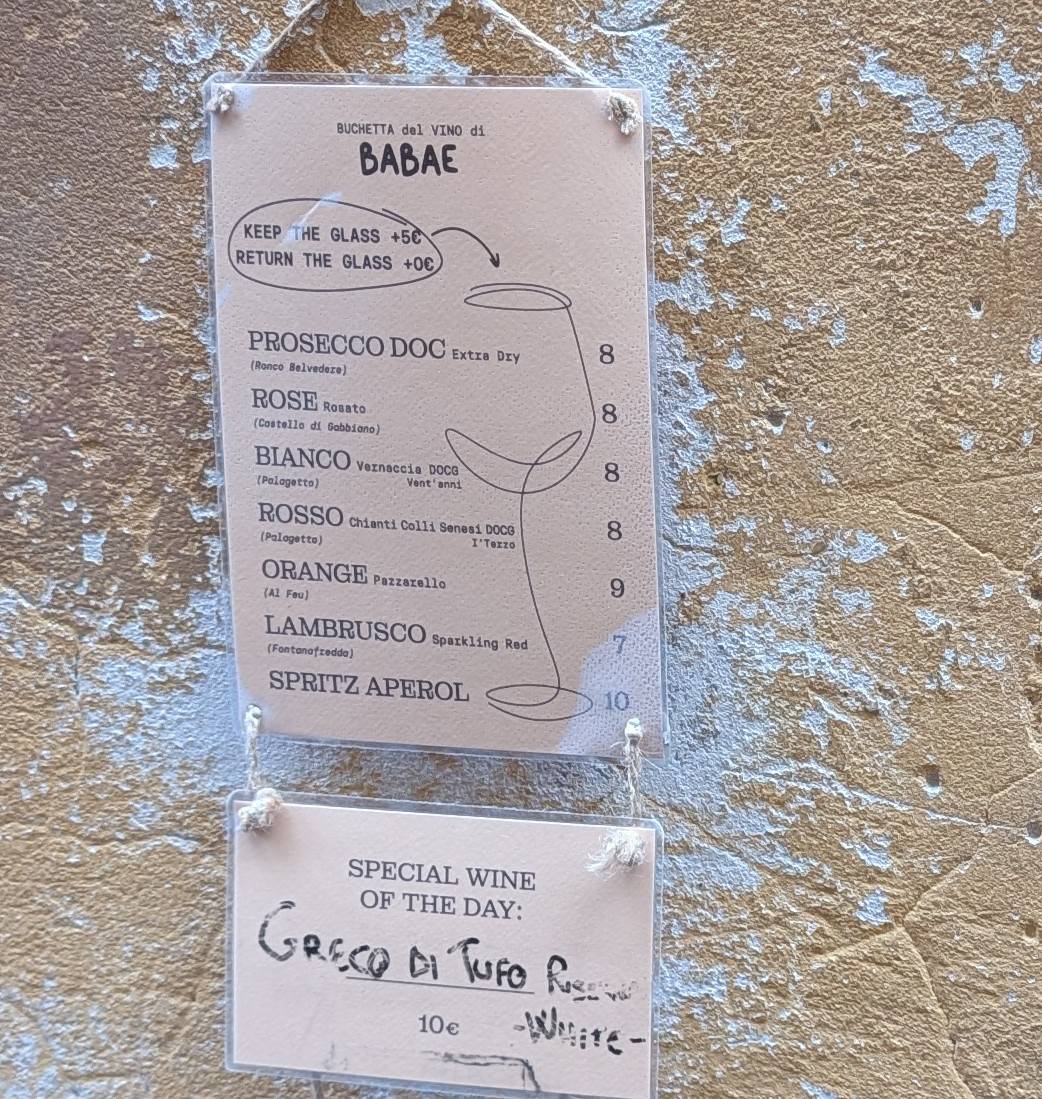 BUCHETTA del VINO di
BABAE
KEEP THE GLASS +5€
RETURN THE GLASS +0€
PROSECCO DOC Extra Dry 8
(Ronco Belvedere)
ROSE Rosato 8
(Costello di Gabbiano)
BIANCO Vernaccia DOCG 8
(Palagetto) Vent'anni
ROSSO Chianti Colli Senesi DOCG 8
(Palagetto) I'Terzo
ORANGE Pazzarello 9
(Al Feu)
LAMBRUSCO Sparkling Red 7
(Fontanafredda)
SPRITZ APEROL 10
SPECIAL WINE
OF THE DAY:
GRECO DI TUFO
10€ -WHITE-